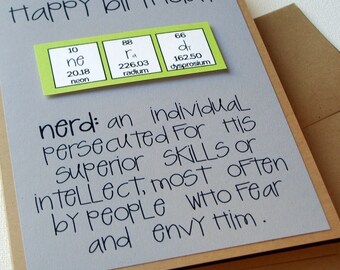 Happy birthday
10 88 66
ne ra d
20.18 226.03 162.50
neon radium dysprosium
nerd: an individual
persecuted for his
superior skills or
intellect, most often
by people who fear
and envy him.